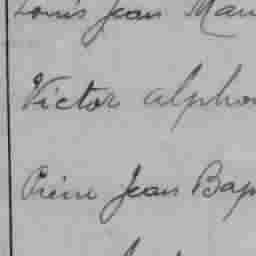 Louis Jean Mau
Victor alphon
Pierre Jean Bap